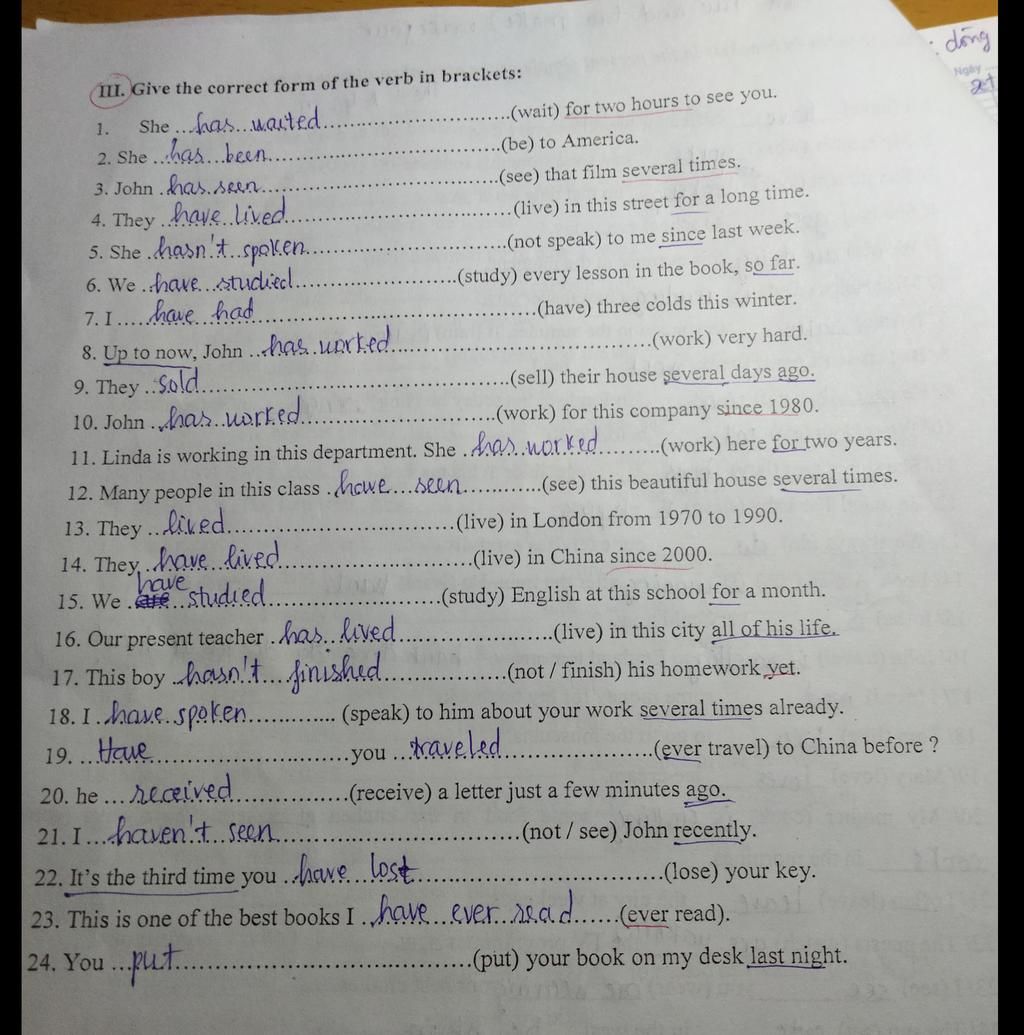 dống
Ngày
III. Give the correct form of the verb in brackets:
1. She ...has..waited..............................(wait) for two hours to see you.
2. She ..has...been.....................................(be) to America.
3. John .has.seen.....................................(see) that film several times.
4. They ..have..lived...................................(live) in this street for a long time.
5. She .hasn't..spoken...............................(not speak) to me since last week.
6. We ..have...studied..........................(study) every lesson in the book, so far.
7. I .....have...had.........................................(have) three colds this winter.
8. Up to now, John ..has.worked..........................................(work) very hard.
9. They ..sold................................................(sell) their house several days ago.
10. John ..has..worked..............................(work) for this company since 1980.
11. Linda is working in this department. She .has..worked.........(work) here for two years.
12. Many people in this class .have...seen............(see) this beautiful house several times.
13. They ..lived....................................(live) in London from 1970 to 1990.
14. They ..have..lived..............................(live) in China since 2000.
have
15. We .are..studied...........................(study) English at this school for a month.
16. Our present teacher .has..lived.........................(live) in this city all of his life.
17. This boy ..hasn't...finished...................(not / finish) his homework yet.
18. I ..have.spoken............. (speak) to him about your work several times already.
19. ...Have................................you ...traveled........................(ever travel) to China before ?
20. he ...received..................(receive) a letter just a few minutes ago.
21. I ...haven't..seen......................................(not / see) John recently.
22. It's the third time you ..have...lost......................................(lose) your key.
23. This is one of the best books I ..have...ever..read......(ever read).
24. You ...put.............................................(put) your book on my desk last night.